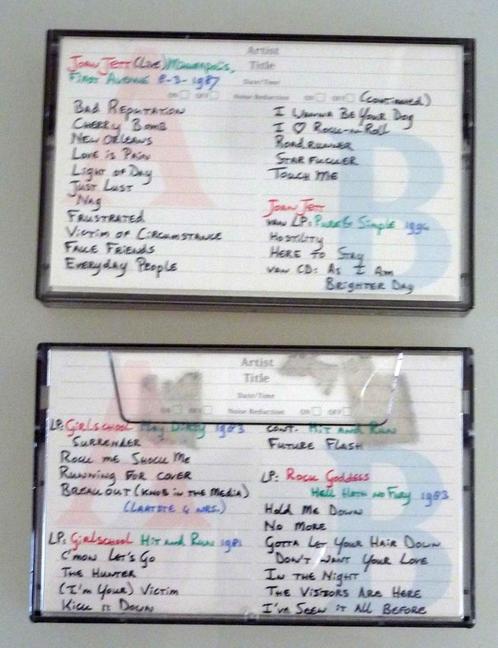 Artist
Title
Date/Time
Joan Jett (Live) Minneapolis,
First Avenue 8-3-1987
ON OFF Noise Reduction ON OFF
Bad Reputation
Cherry Bomb
New Orleans
Love is Pain
Light of Day
Just Lust
Nag
Frustrated
Victim of Circumstance
Fake Friends
Everyday People
(continued)
I Wanna Be Your Dog
I ♡ Rock-n-Roll
Roadrunner
Star Fucker
Touch Me
Joan Jett
van LP: Pure & Simple 1994
Hostility
Here to Stay
van CD: As I Am
Brighter Day
A
B
Artist
Title
Date/Time
ON OFF Noise Reduction ON OFF
LP: Girlschool Play Dirty 1983
Surrender
Rock me Shock Me
Running for cover
Breakout (Knob in the Media)
(Laatste 4 nrs.)
LP: Girlschool Hit and Run 1981
C'mon Let's Go
The Hunter
(I'm Your) Victim
Kick it Down
cont. Hit and Run
Future Flash
LP: Rock Goddess
Hell Hath no Fury 1983
Hold Me Down
No More
Gotta Let Your Hair Down
Don't Want Your Love
In the Night
The Visitors Are Here
I've Seen it All Before
A
B